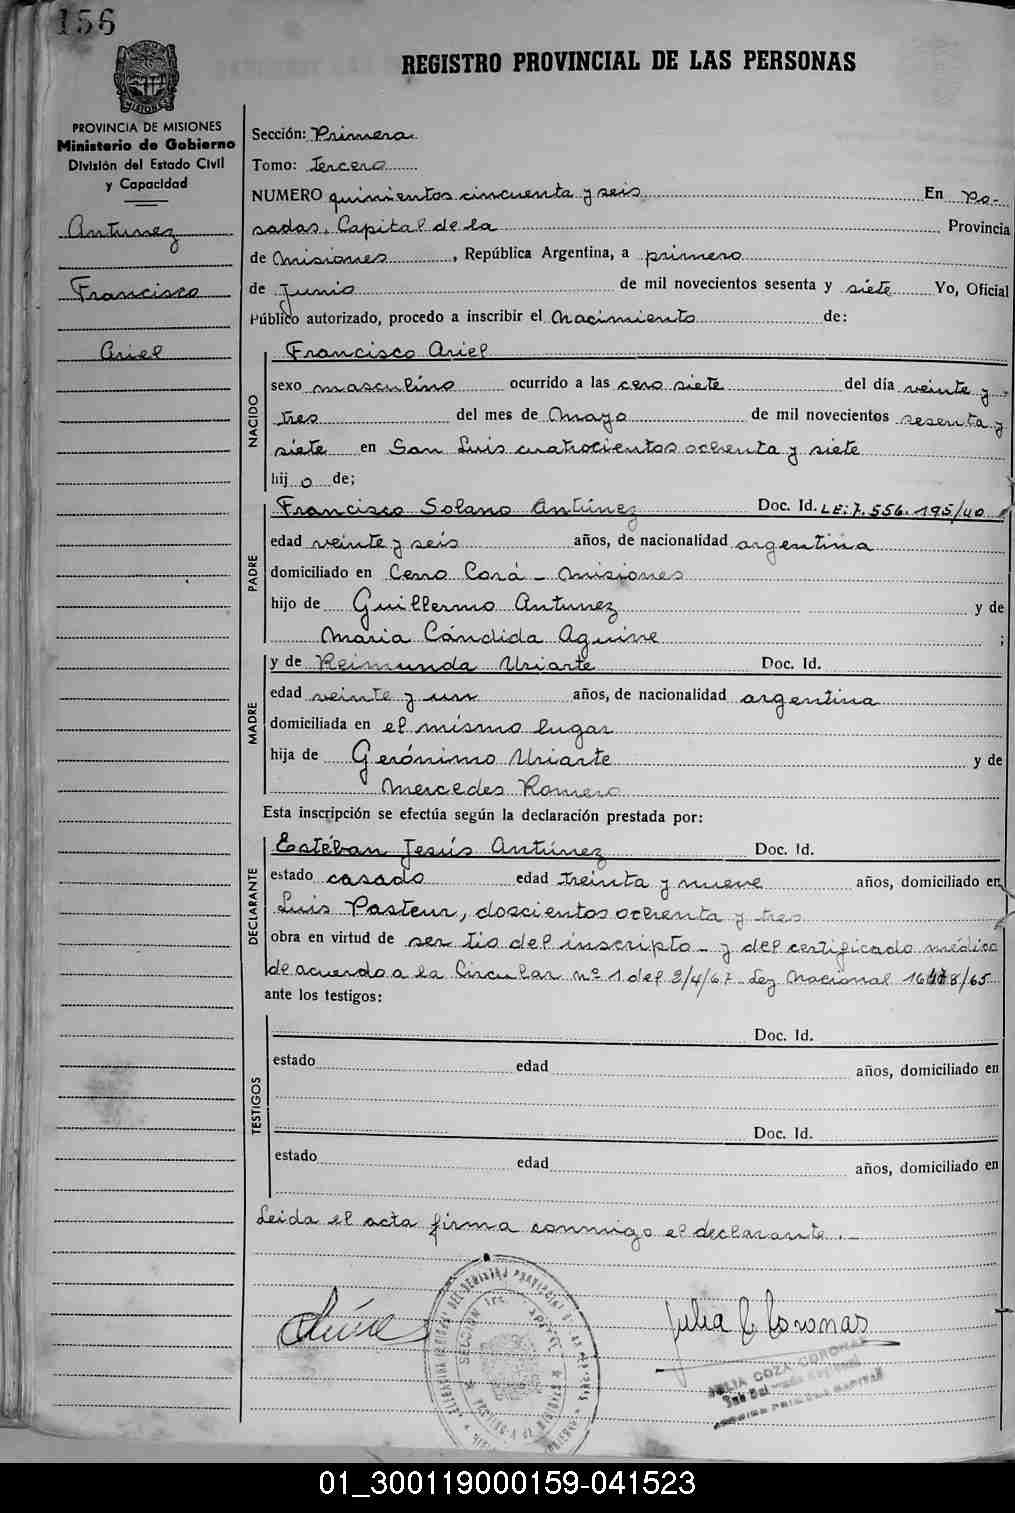 156
REGISTRO PROVINCIAL DE LAS PERSONAS
MISIONES
PROVINCIA DE MISIONES
Ministerio de Gobierno
División del Estado Civil
y Capacidad
Antunez
Francisco
Ariel
Sección: Primera
Tomo: Tercero
NUMERO quinientos cincuenta y seis En Po-
sadas, Capital de la Provincia
de Misiones, República Argentina, a primero
de Junio de mil novecientos sesenta y siete Yo, Oficial
Público autorizado, procedo a inscribir el Nacimiento de:
NACIDO
Francisco Ariel
sexo masculino ocurrido a las cero siete del día veinte y
tres del mes de Mayo de mil novecientos sesenta y
siete en San Luis cuatrocientos ochenta y siete
hij o de;
PADRE
Francisco Solano Antúnez Doc. Id. LE: 7.556.195/40
edad veinte y seis años, de nacionalidad argentina
domiciliado en Cerro Corá - Misiones
hijo de Guillermo Antunez y de
Maria Cándida Aguirre ;
MADRE
y de Reimunda Uriarte Doc. Id.
edad veinte y un años, de nacionalidad argentina
domiciliada en el mismo lugar
hija de Gerónimo Uriarte y de
Mercedes Romero
Esta inscripción se efectúa según la declaración prestada por:
DECLARANTE
Estéban Jesús Antúnez Doc. Id.
estado casado edad treinta y nueve años, domiciliado en
Luis Pasteur, doscientos ochenta y tres
obra en virtud de ser tio del inscripto - y del certificado médico
de acuerdo a la Circular nº 1 del 2/4/67 - Ley Nacional 16478/65
ante los testigos:
TESTIGOS
Doc. Id.
estado edad años, domiciliado en
Doc. Id.
estado edad años, domiciliado en
Leida el acta firma conmigo el declarante. -
Julia C Coronas
JULIA COZA CORONAS
SECCION
01_300119000159-041523